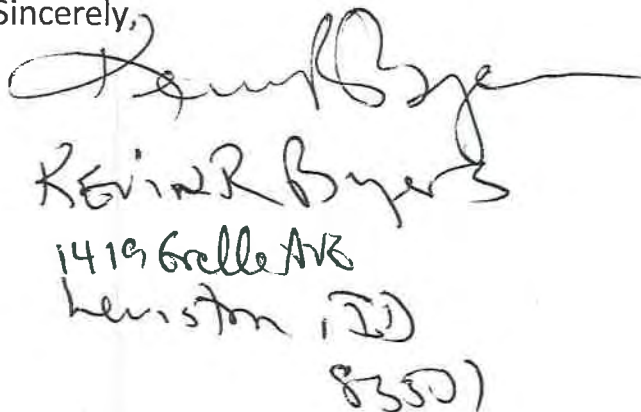 Sincerely,
Kevin R Byers
KEViN R Byers
1419 Grelle AVE
Lewiston, ID
83501